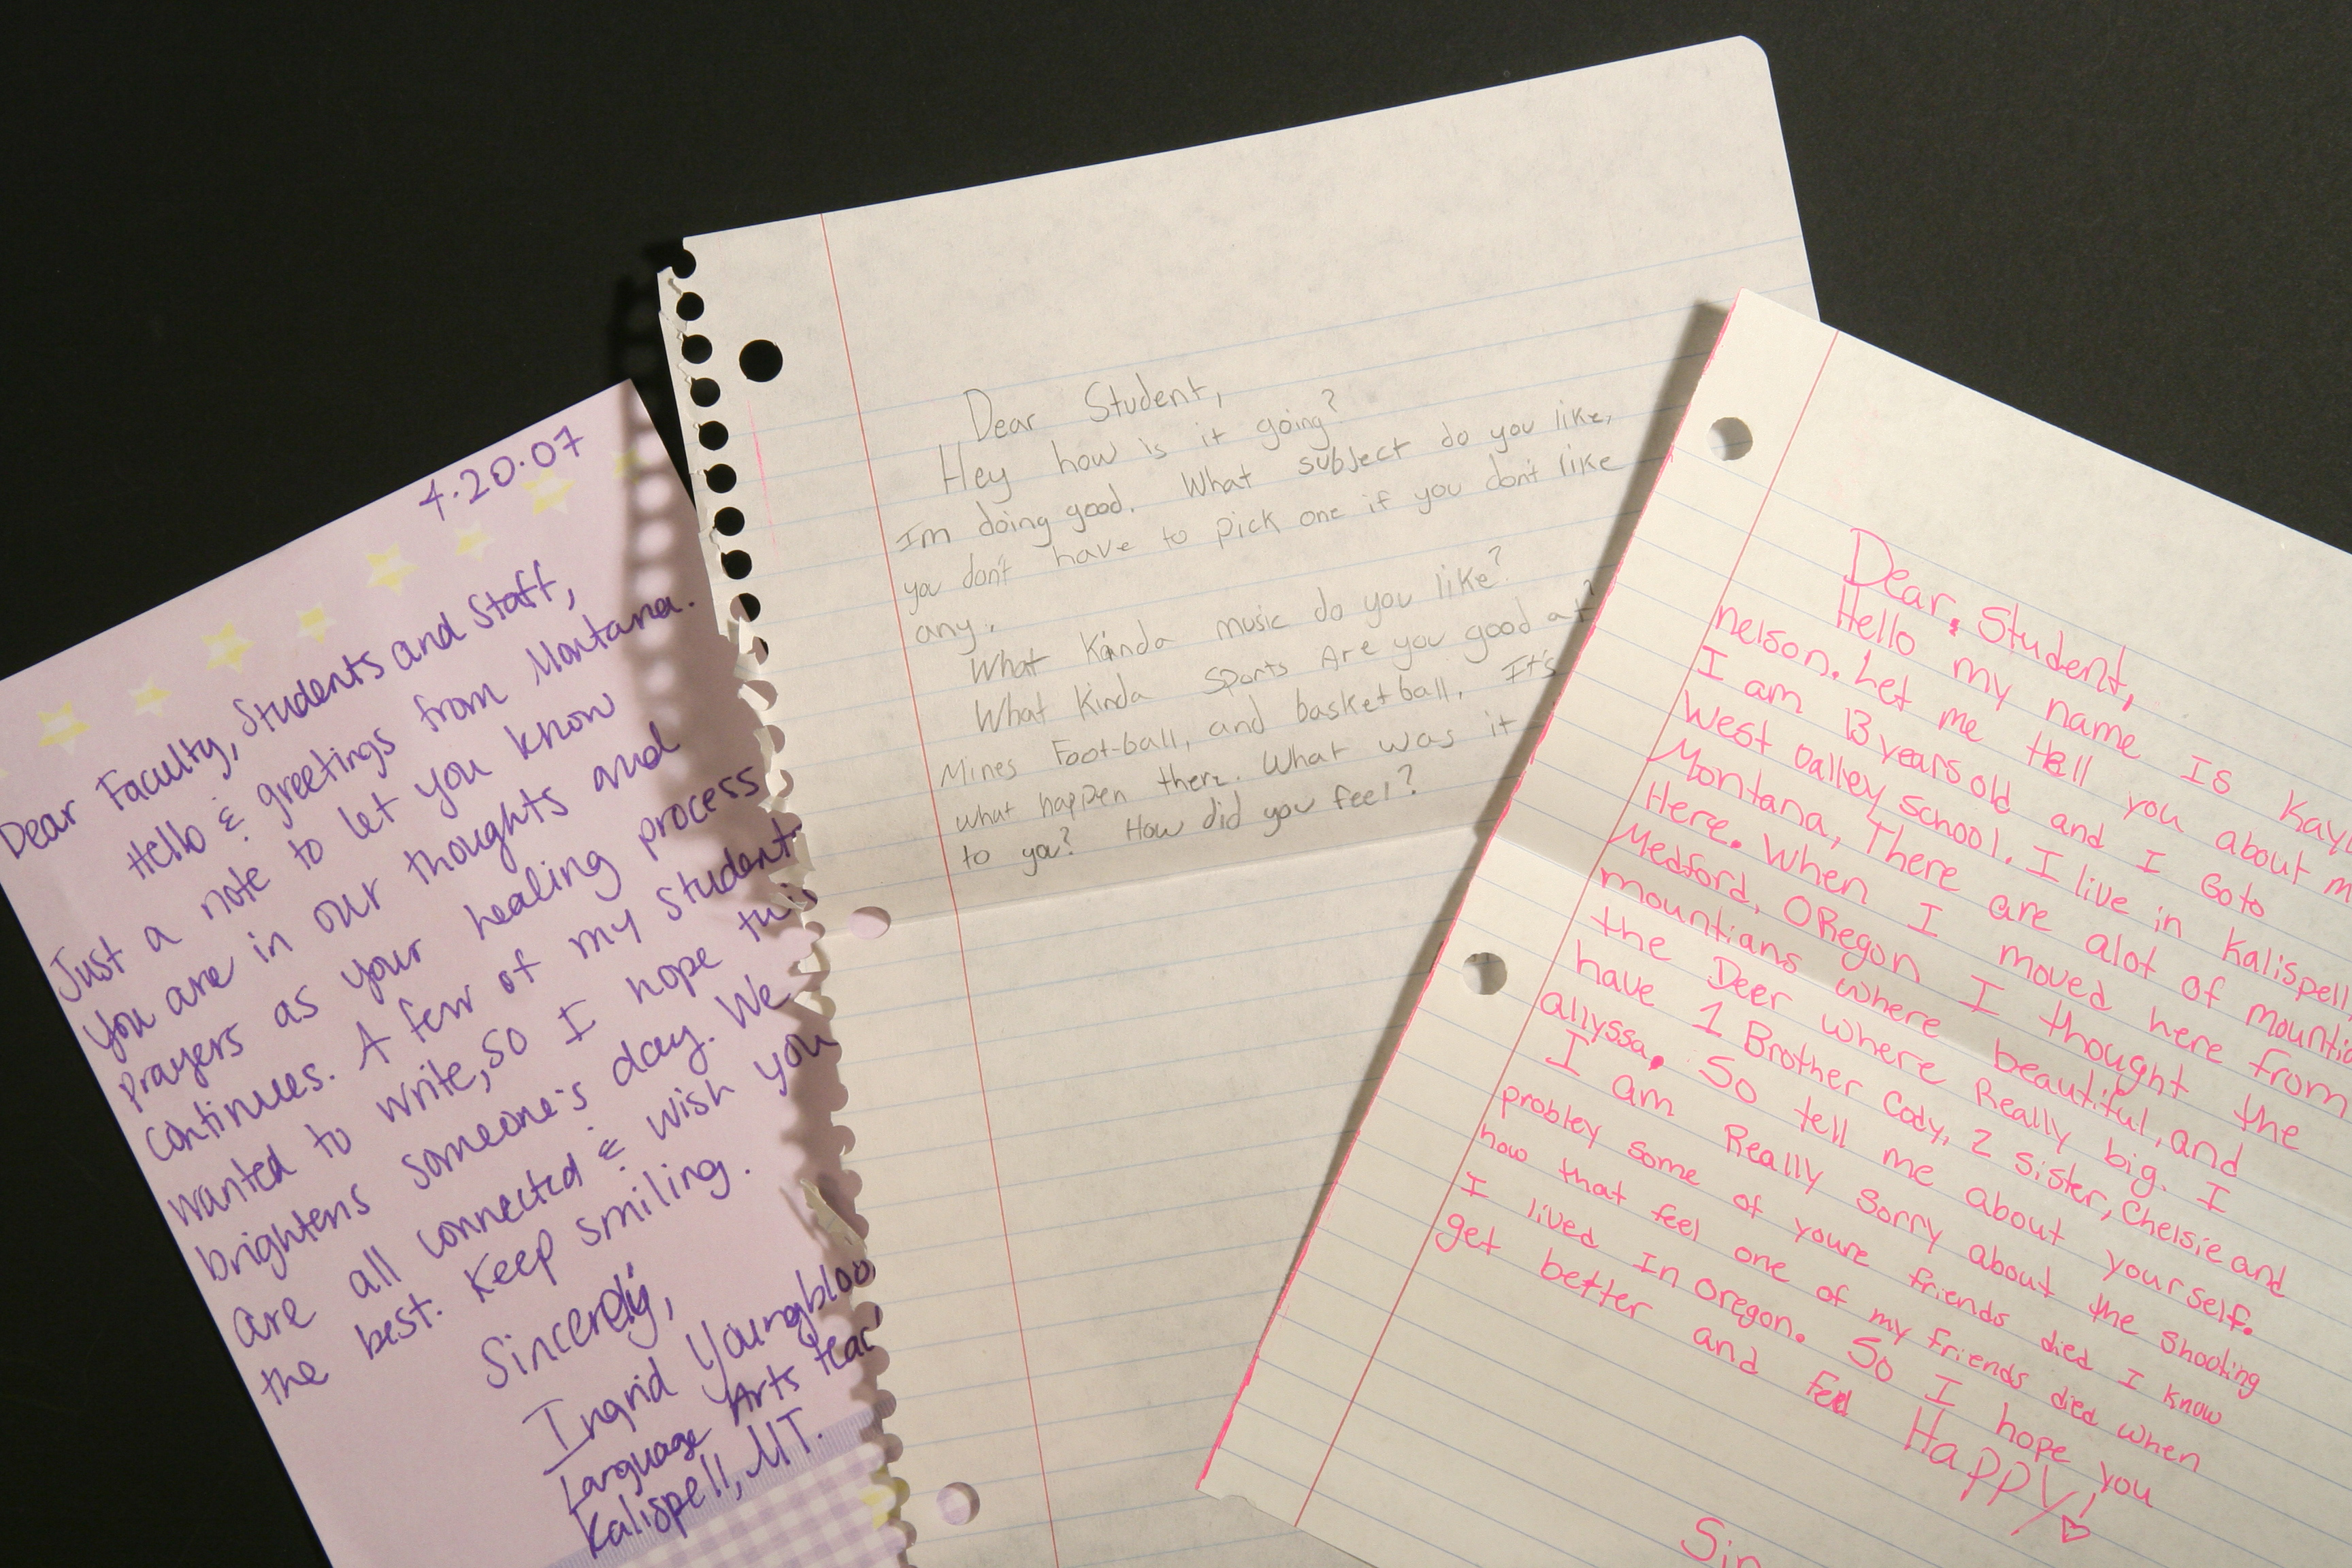 4.20.07
Dear Faculty, Students and Staff,
Hello & greetings from Montana.
Just a note to let you know
you are in our thoughts and
prayers as your healing process
continues. A few of my student
wanted to write, so I hope
brightens someone's day. We
are all connected & wish you
the best. Keep smiling.
Sincerely,
Ingrid Youngbloo
Language Arts teac
Kalispell, MT.
Dear Student,
Hey how is it going?
Im doing good. What subject do you like,
you don't have to pick one if you don't like
any.
What Kinda music do you like?
What Kinda sports Are you good at?
Mines Foot-ball, and basketball. It's
what happen there. What was it
to you? How did you feel?
Dear, Student,
Hello my name Is Kay
nelson. Let me tell you about m
I am 13 years old and I Go to
West Valley School. I live in Kalispell
Montana, There are alot of mountia
Here. When I moved here from
Medford, ORegon I thought the
mountians where beautiful, and
the Deer where Really big. I
have 1 Brother Cody, 2 sister, Chelsie and
Allyssa. So tell me about yourself.
I am Really Sorry about the shooting
probley some of youre friends died I know
how that feel one of my friends died when
I lived In Oregon. So I hope you
get better and Feel Happy!
Sin